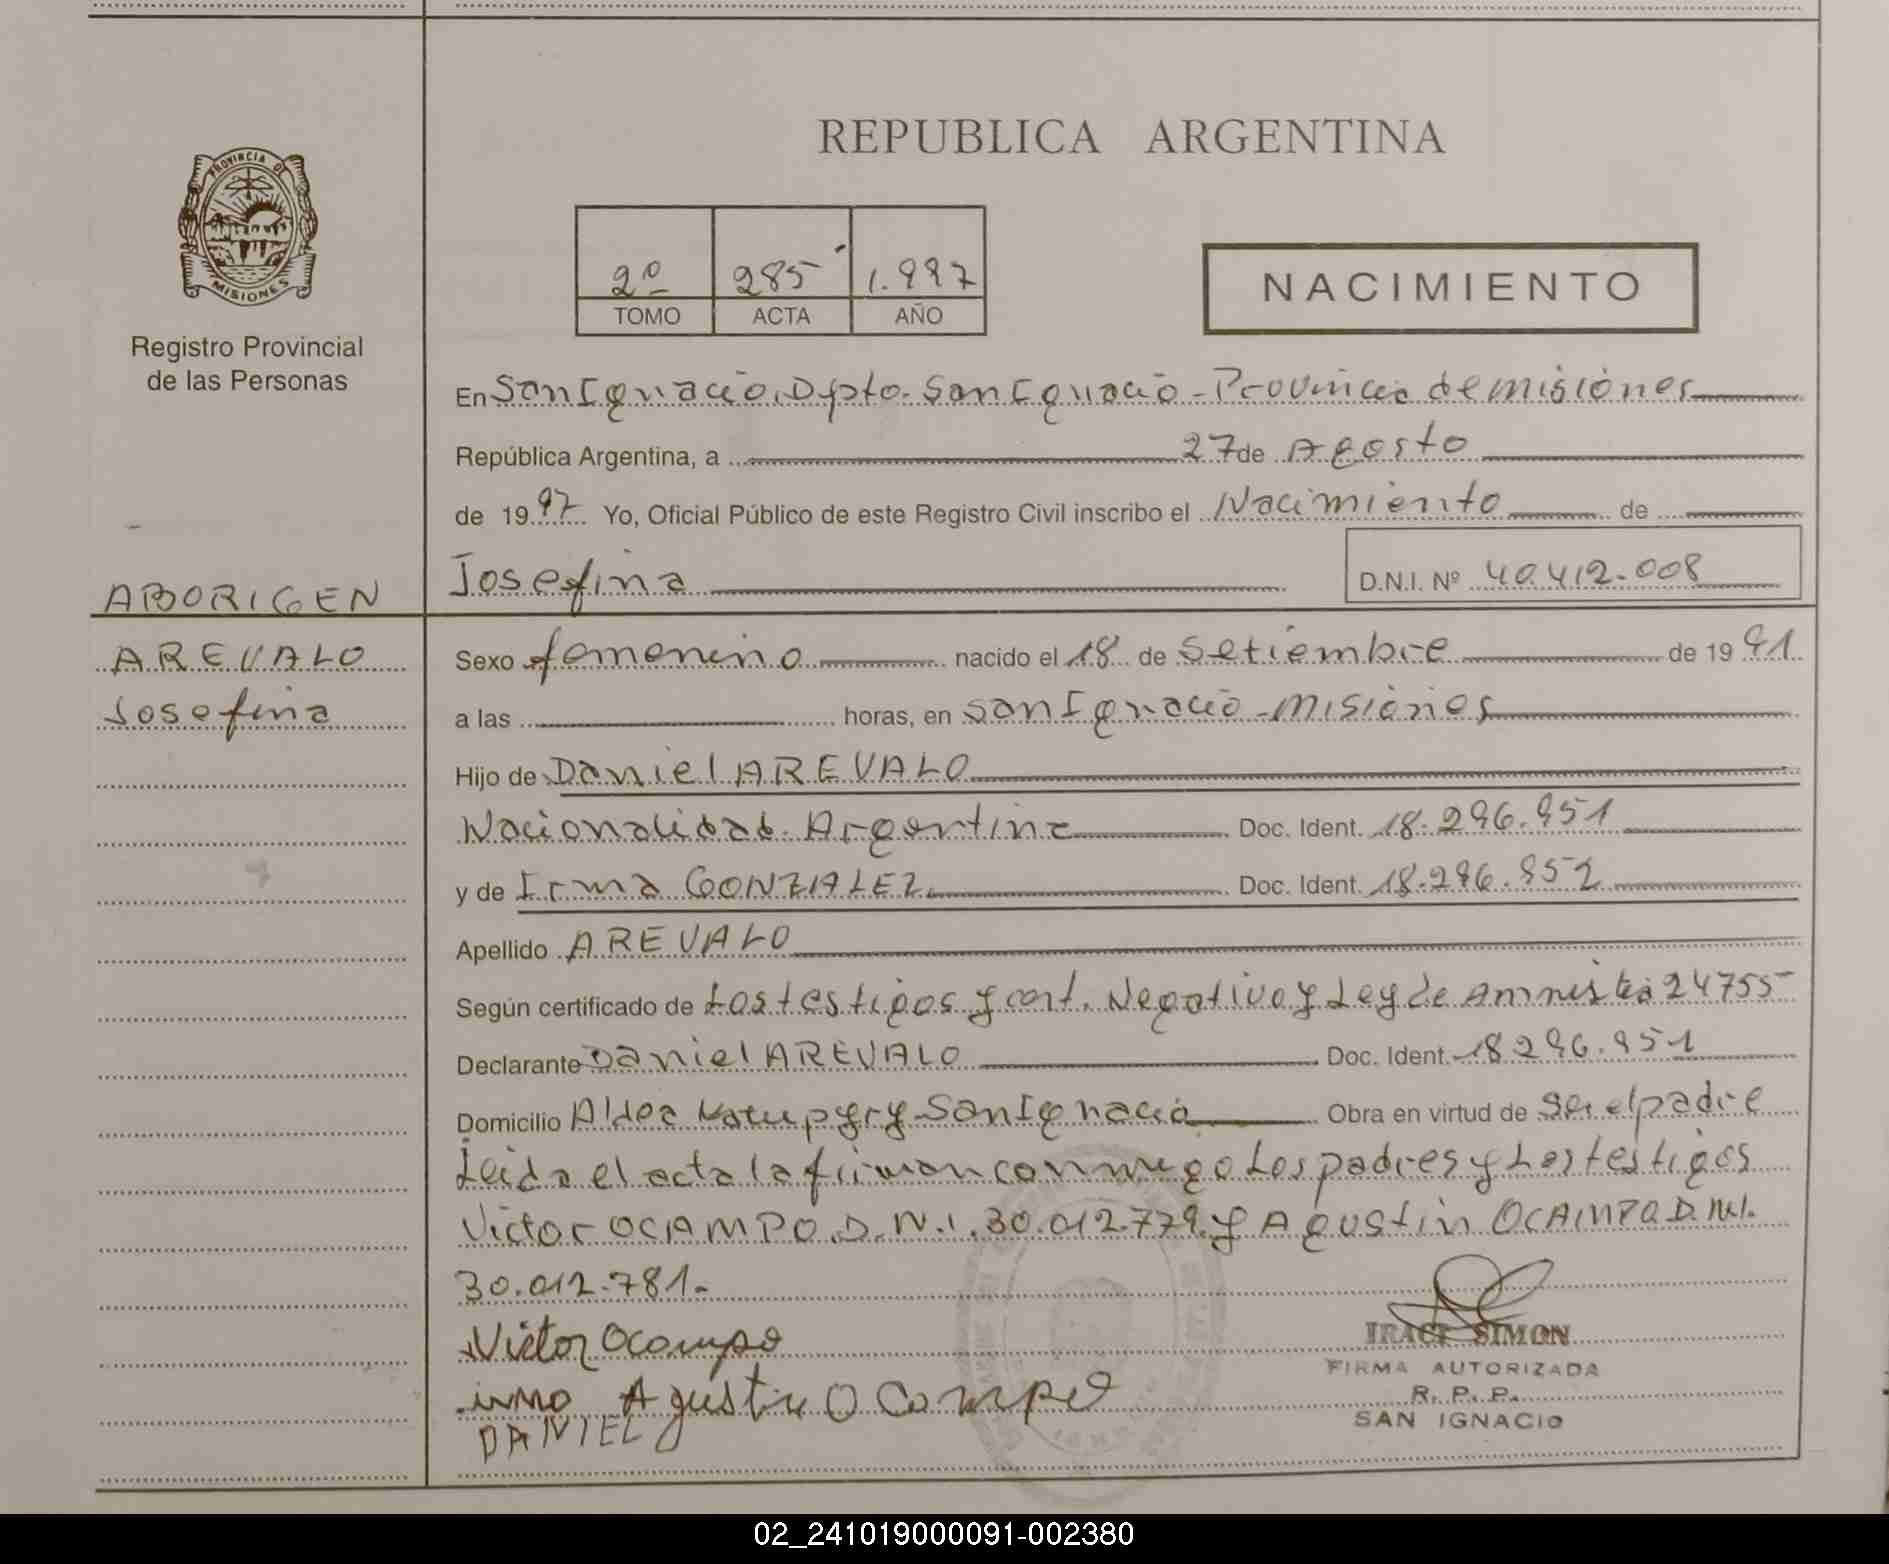 REPUBLICA ARGENTINA
PROVINCIA DE
MISIONES
Registro Provincial
de las Personas
2º 285 1.997
TOMO ACTA AÑO
NACIMIENTO
En San Ignacio, Dpto. San Ignacio - Provincia de misiones
República Argentina, a 27 de Agosto
de 1997 Yo, Oficial Público de este Registro Civil inscribo el Nacimiento de
Josefina D.N.I. Nº 40.412.008
ABORIGEN
AREVALO
Josefina
Sexo femenino nacido el 18 de Setiembre de 1991
a las horas, en San Ignacio - misiones
Hijo de Daniel AREVALO
Nacionalidad Argentina Doc. Ident. 18.296.951
y de Irma GONZALEZ Doc. Ident. 18.296.952
Apellido AREVALO
Según certificado de Los testigos y cert. Negativo y Ley de Amnistia 24755
Declarante Daniel AREVALO Doc. Ident. 18.296.951
Domicilio Aldea Katupyry San Ignacio Obra en virtud de Ser el padre
Leida el acta la firman conmigo Los padres y Los testigos
Victor OCAMPO D.N.I. 30.012.779. y Agustin OCAMPO D.N.I.
30.012.781.
Victor Ocampo
Agustin Ocampo
DANIEL
IRACI SIMON
FIRMA AUTORIZADA
R. P. P.
SAN IGNACIO
02_241019000091-002380